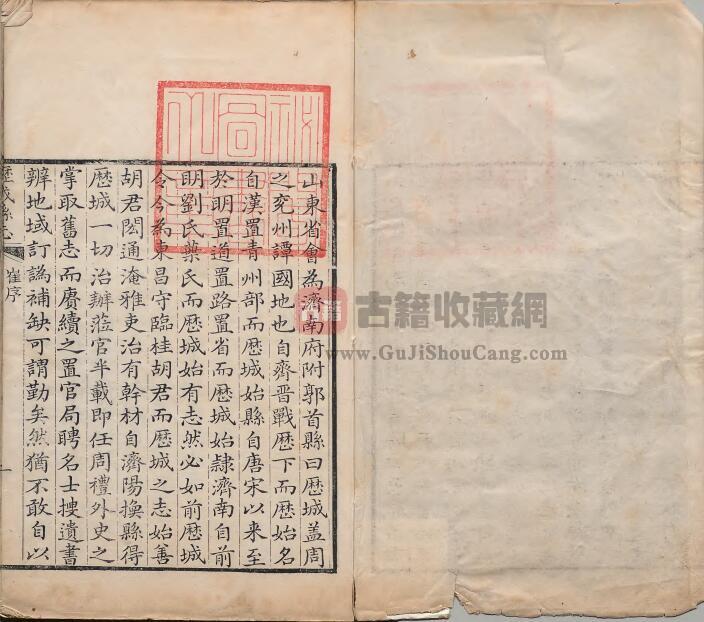 山東省會為濟南府附郭首縣曰歷城盖周
之兖州譚國地也自齊晋戰歷下而歷始名
自漢置青州部而歷城始縣自唐宋以来至
於明置道置路置省而歷城始隸濟南自前
明劉氏葉氏而歷城始有志然必如前歷城
令今為東昌守臨桂胡君而歷城之志始善
胡君閎通淹雅吏治有幹材自濟陽換縣得
歷城一切治辦蒞官半載即任周禮外史之
掌取舊志而賡續之置官局聘名士搜遺書
辨地域訂譌補缺可謂勤矣然猶不敢自以
歷城縣志
崔序
一
古籍收藏網
www.GuJiShouCang.com